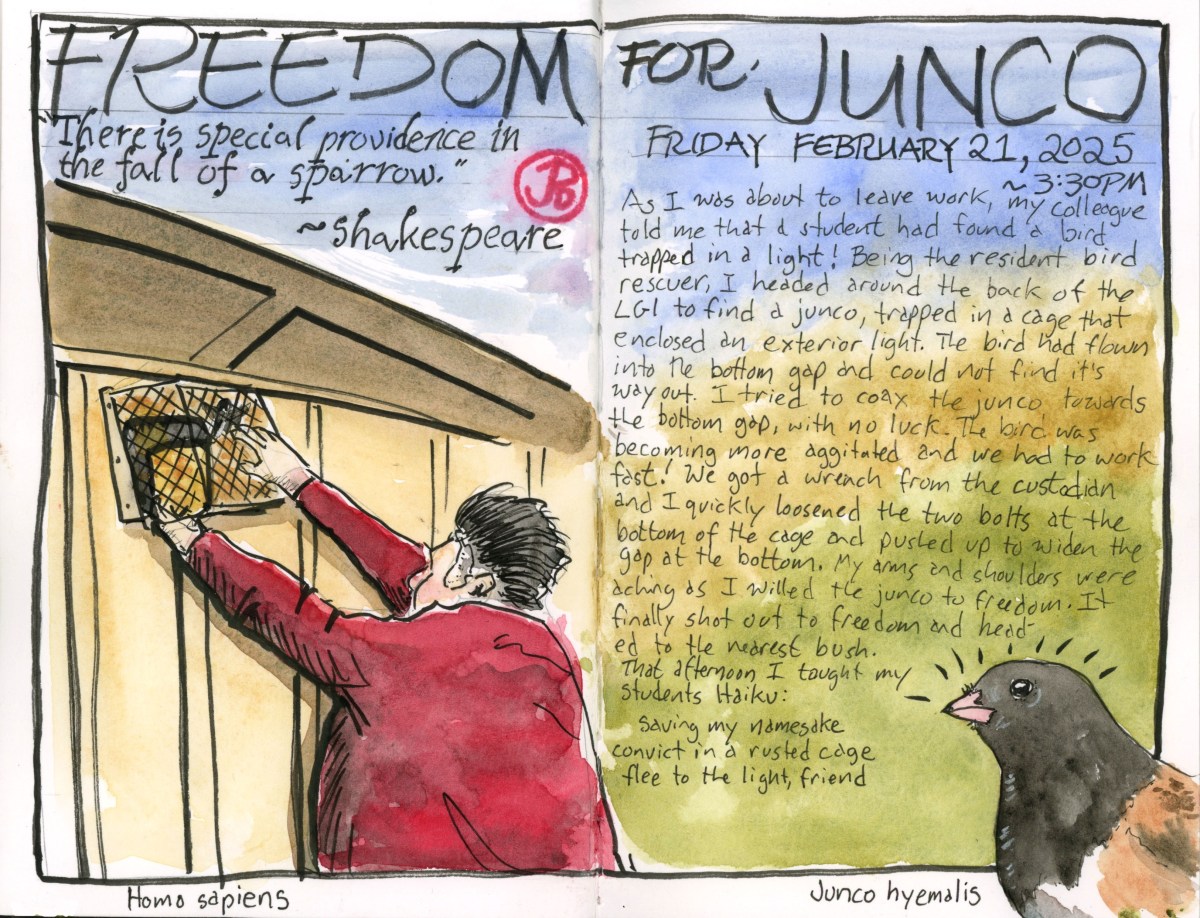 FREEDOM FOR JUNCO
"There is special providence in
the fall of a sparrow."
~Shakespeare
JPD
FRIDAY FEBRUARY 21, 2025
~3:30PM
As I was about to leave work, my colleague
told me that a student had found a bird
trapped in a light! Being the resident bird
rescuer, I headed around the back of the
LGI to find a junco, trapped in a cage that
enclosed an exterior light. The bird had flown
into the bottom gap and could not find it's
way out. I tried to coax the junco towards
the bottom gap, with no luck. The bird was
becoming more aggitated and we had to work
fast! We got a wrench from the custodian
and I quickly loosened the two bolts at the
bottom of the cage and pushed up to widen the
gap at the bottom. My arms and shoulders were
aching as I willed the junco to freedom. It
finally shot out to freedom and head-
ed to the nearest bush.
That afternoon I taught my
students Haiku:
Saving my namesake
convict in a rusted cage
flee to the light, friend
Homo sapiens
Junco hyemalis